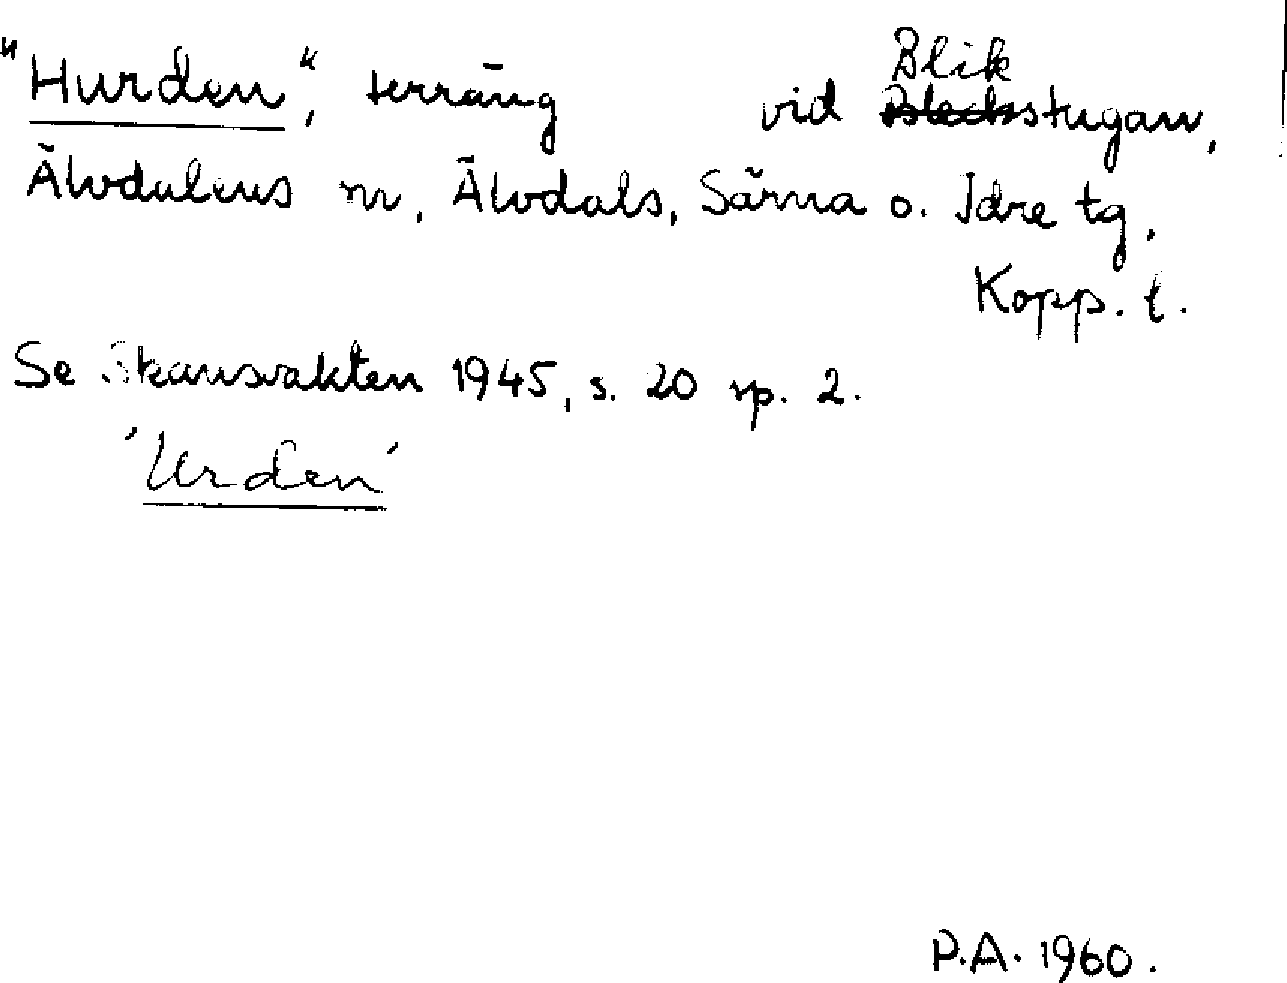 "Hurden", terräng vid Blikstugan,
Älvdalens nr, Älvdals, Särna o. Idre tg.
Kopp. l.
Se Skansvakten 1945, s. 20 sp. 2.
'Urden'
P.A. 1960.